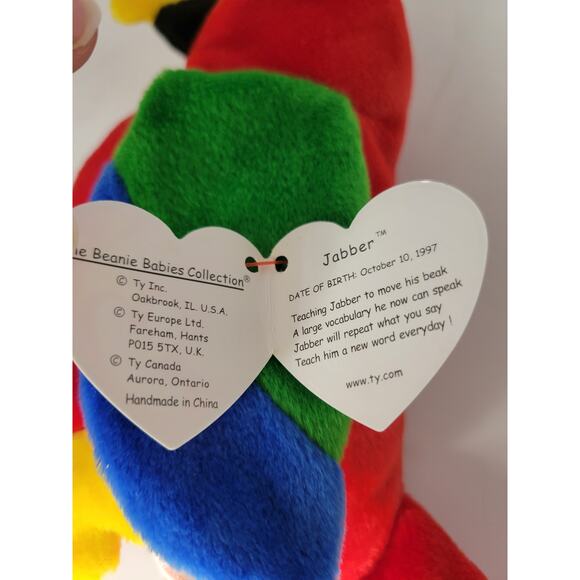 Beanie Babies Collection®
© Ty Inc.
Oakbrook, IL. U.S.A.
© Ty Europe Ltd.
Fareham, Hants
PO15 5TX, U.K.
© Ty Canada
Aurora, Ontario
Handmade in China
Jabber™
DATE OF BIRTH: October 10, 1997
Teaching Jabber to move his beak
A large vocabulary he now can speak
Jabber will repeat what you say
Teach him a new word everyday !
www.ty.com